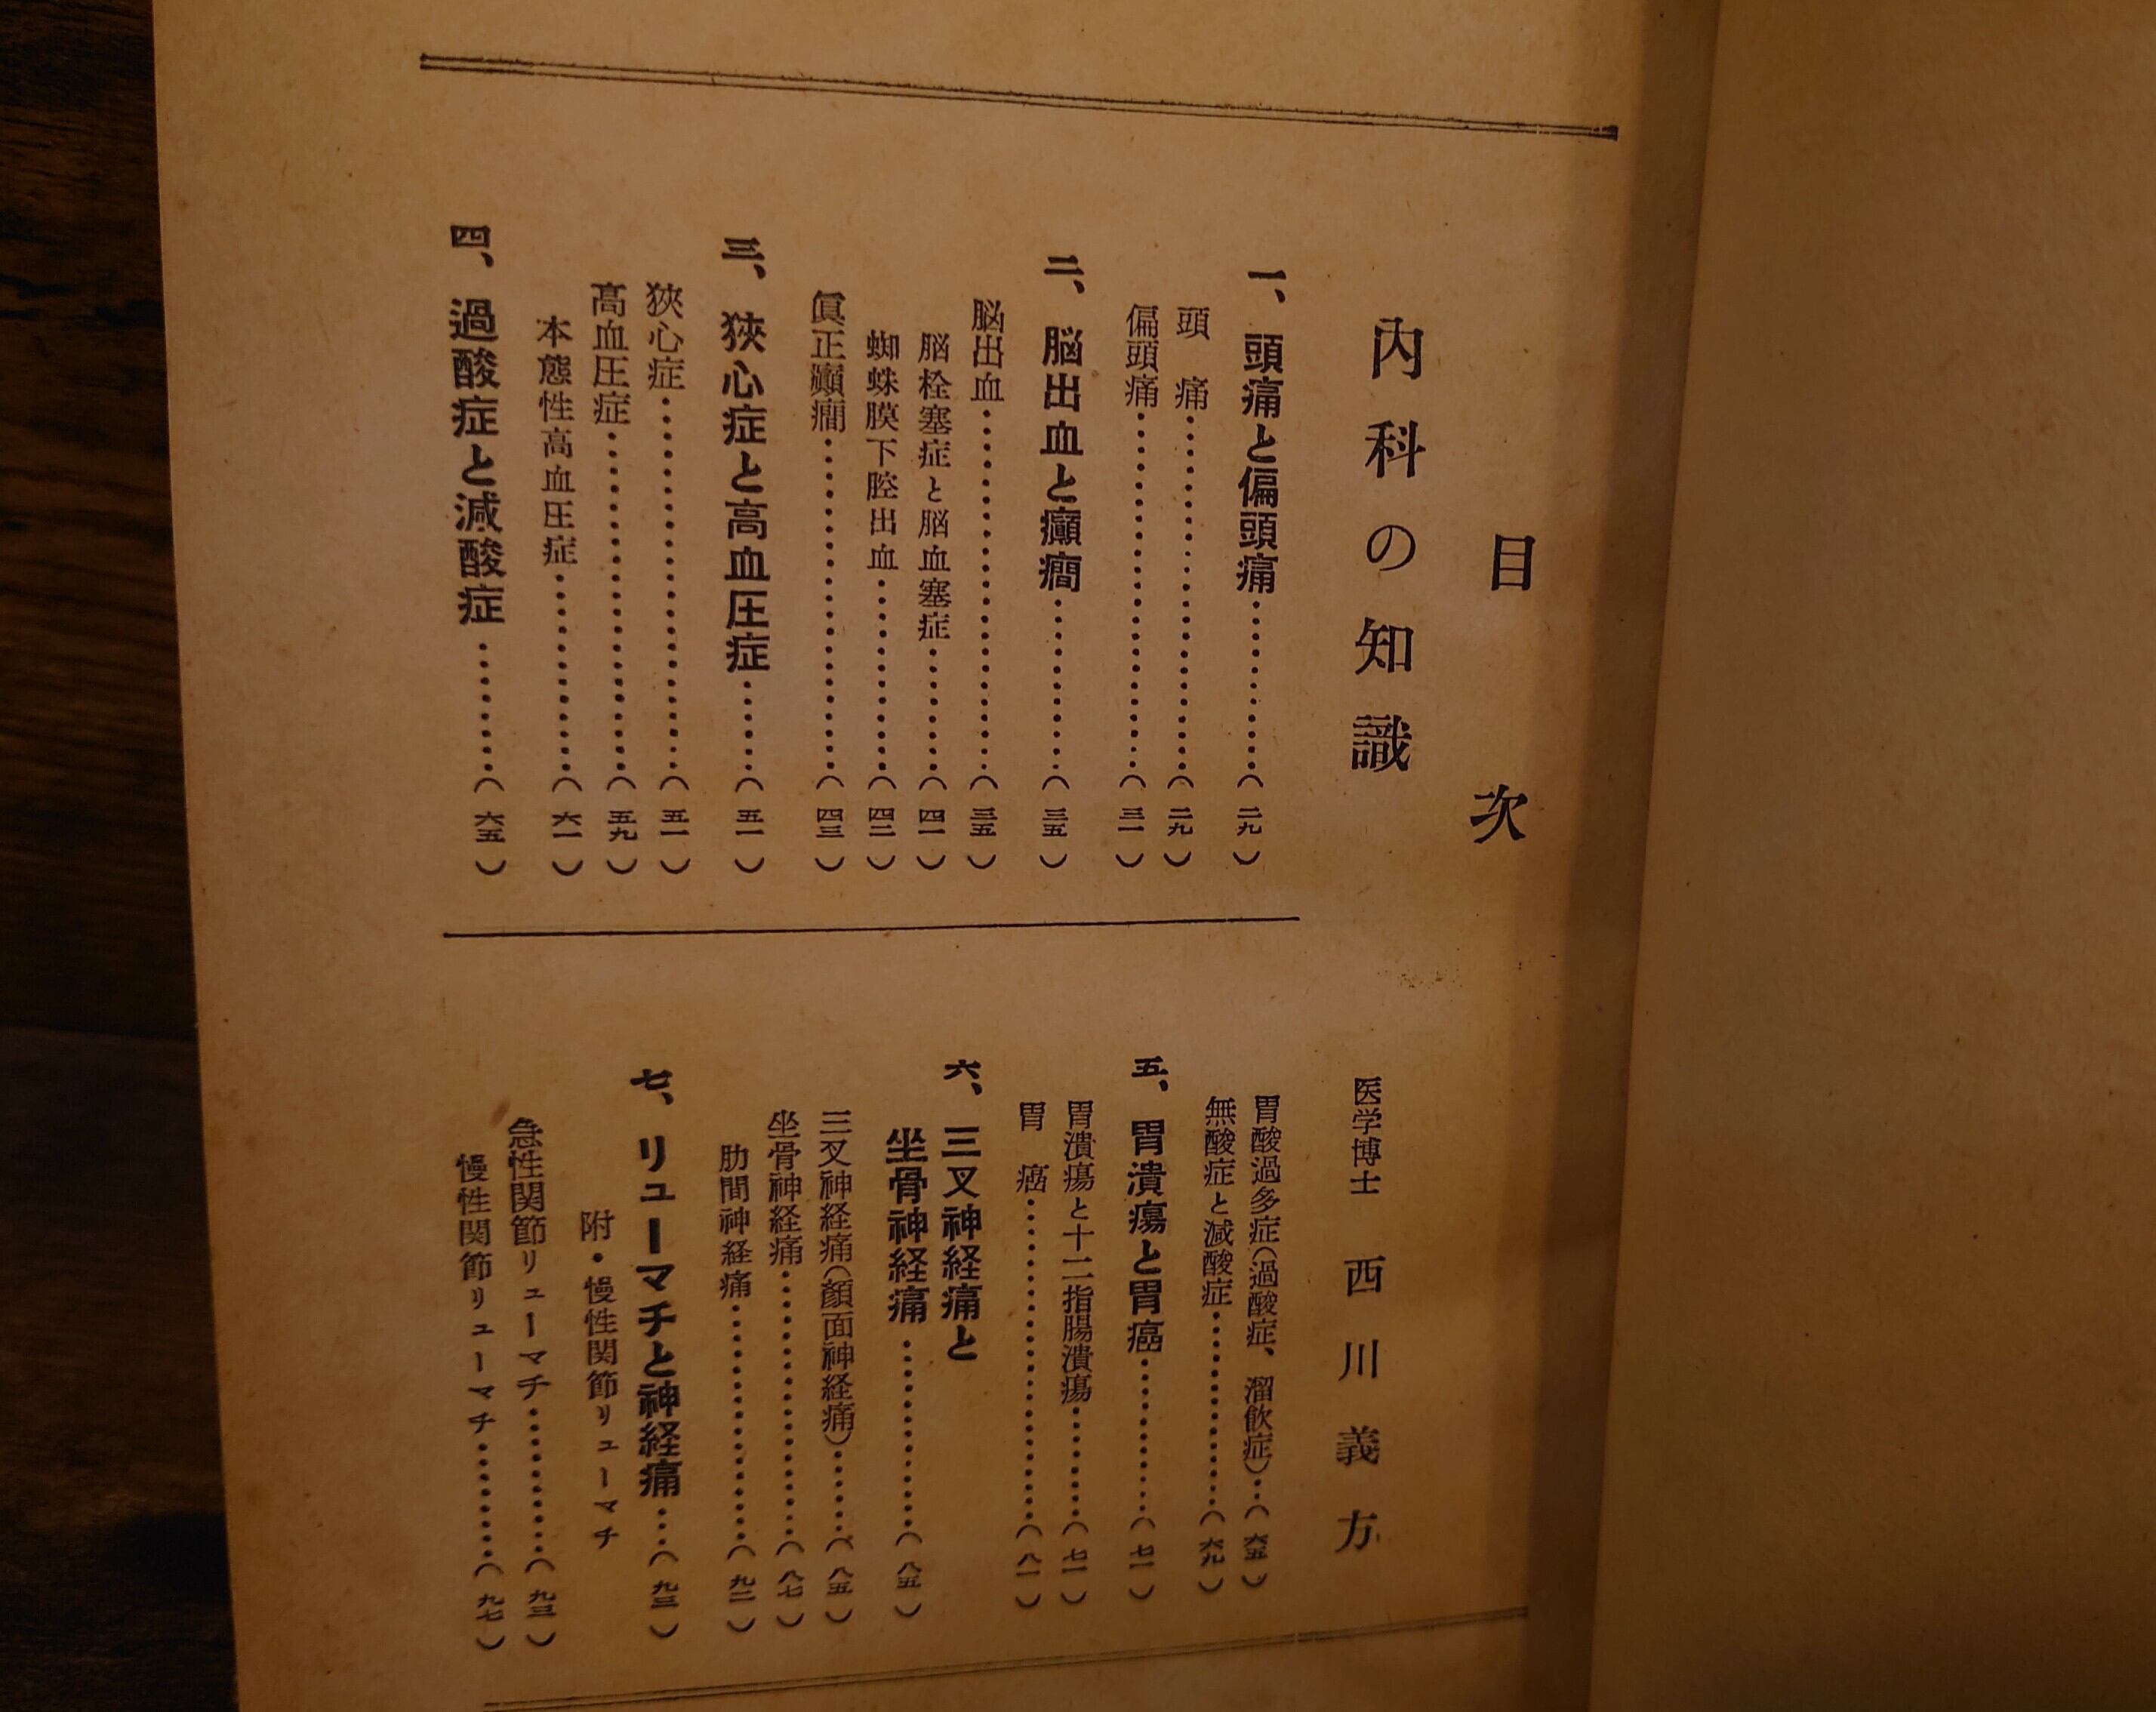 目次
内科の知識
医学博士 西川義方
一、頭痛と偏頭痛…………(二九)
頭 痛…………………(二九)
偏頭痛…………………(三一)
二、脳出血と癲癇…………(三五)
脳出血…………………(三五)
脳栓塞症と脳血塞症………(四一)
蜘蛛膜下腔出血…………(四二)
眞正癲癇………………(四三)
三、狹心症と高血圧症……(五一)
狹心症…………………(五一)
高血圧症………………(五九)
本態性高血圧症…………(六一)
四、過酸症と減酸症………(六五)
胃酸過多症(過酸症、溜飮症)…(六五)
無酸症と減酸症…………(六九)
五、胃潰瘍と胃癌…………(七一)
胃潰瘍と十二指腸潰瘍……(七一)
胃 癌…………………(八一)
六、三叉神経痛と
坐骨神経痛…………(八五)
三叉神経痛(顔面神経痛)……(八五)
坐骨神経痛………………(八七)
肋間神経痛………………(九二)
七、リューマチと神経痛…(九三)
附・慢性関節リューマチ
急性関節リューマチ………(九三)
慢性関節リューマチ………(九七)